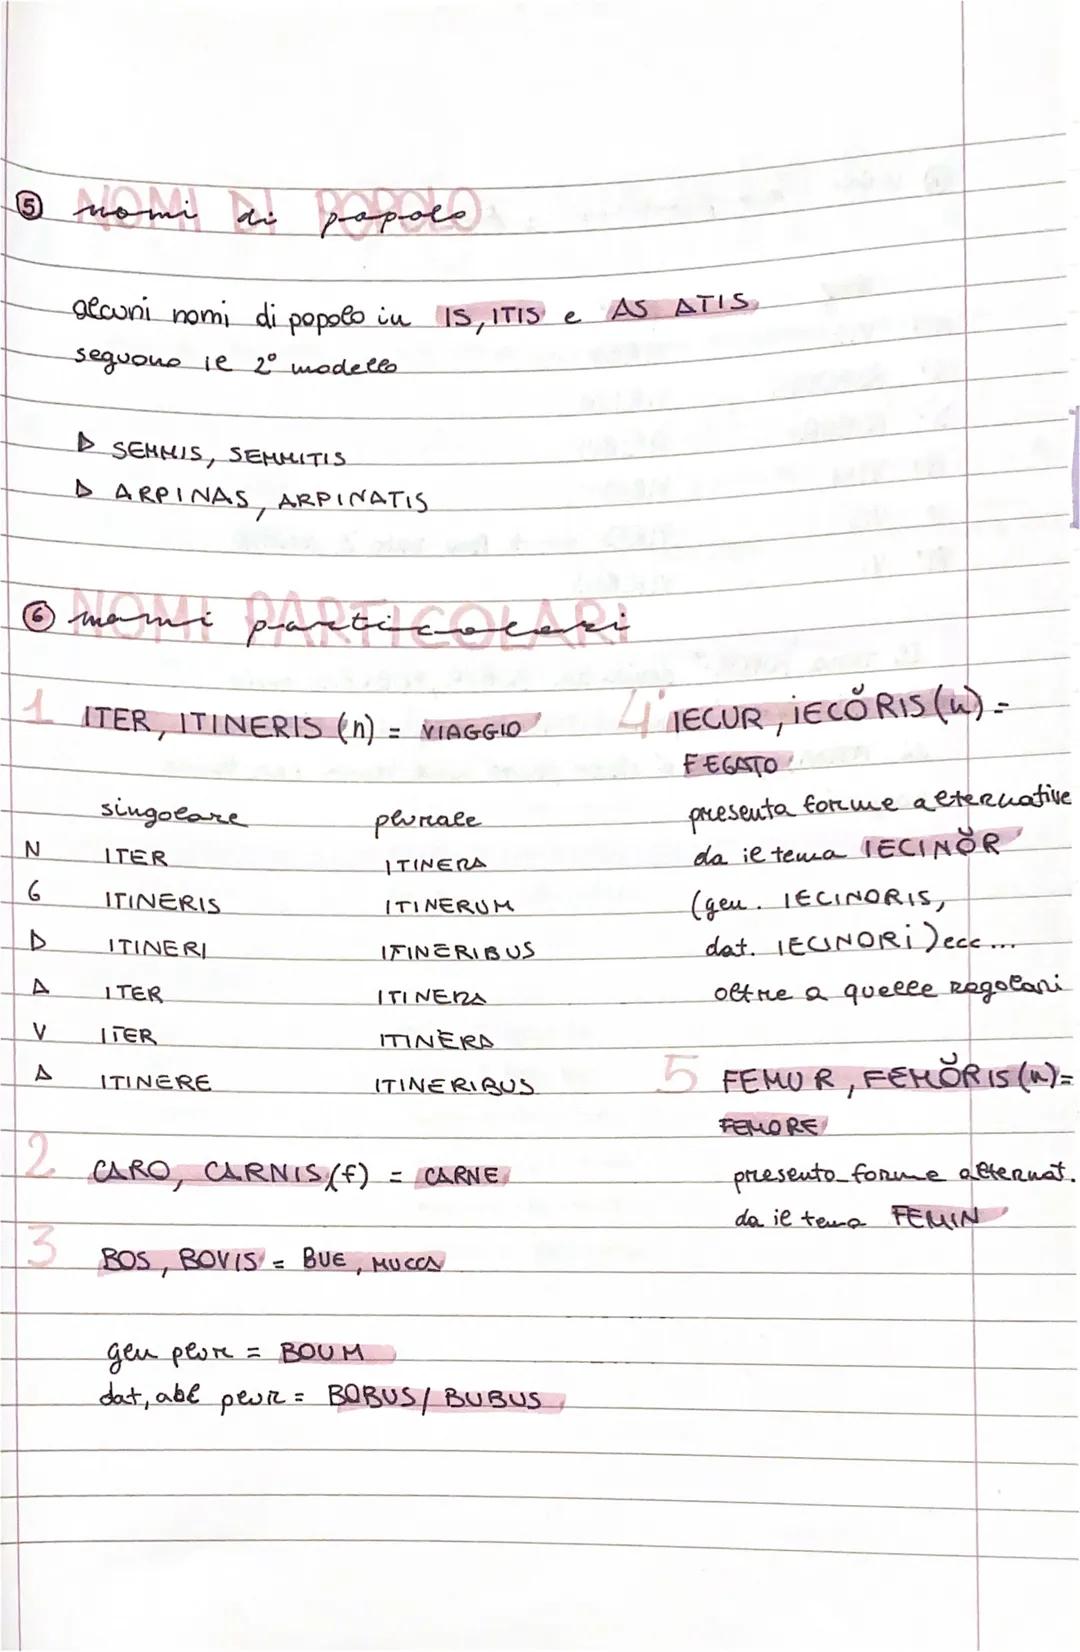 5 nomi di popolo
NOMI DI POPOLO
alcuni nomi di popolo in IS, ITIS e AS ATIS
seguono il 2° modello
▷ SEMMIS, SEMMITIS
▷ ARPINAS, ARPINATIS
6 nomi particolari
NOMI PARTICOLARI
1 ITER, ITINERIS (n) = VIAGGIO
singolare plurale
N ITER ITINERA
G ITINERIS ITINERUM
D ITINERI ITINERIBUS
A ITER ITINERA
V ITER ITINERA
A ITINERE ITINERIBUS
2 CARO, CARNIS (f) = CARNE
3 BOS, BOVIS = BUE, MUCCA
gen plur = BOUM
dat, abl plur = BOBUS / BUBUS
4 IECUR, IECŎRIS (n) =
FEGATO
presenta forme alternative
da il tema IECINŎR
(gen. IECINORIS,
dat. IECINORI) ecc...
oltre a quelle regolari
5 FEMUR, FEMŎRIS (n) =
FEMORE
presento forme alternat.
da il tema FEMIN